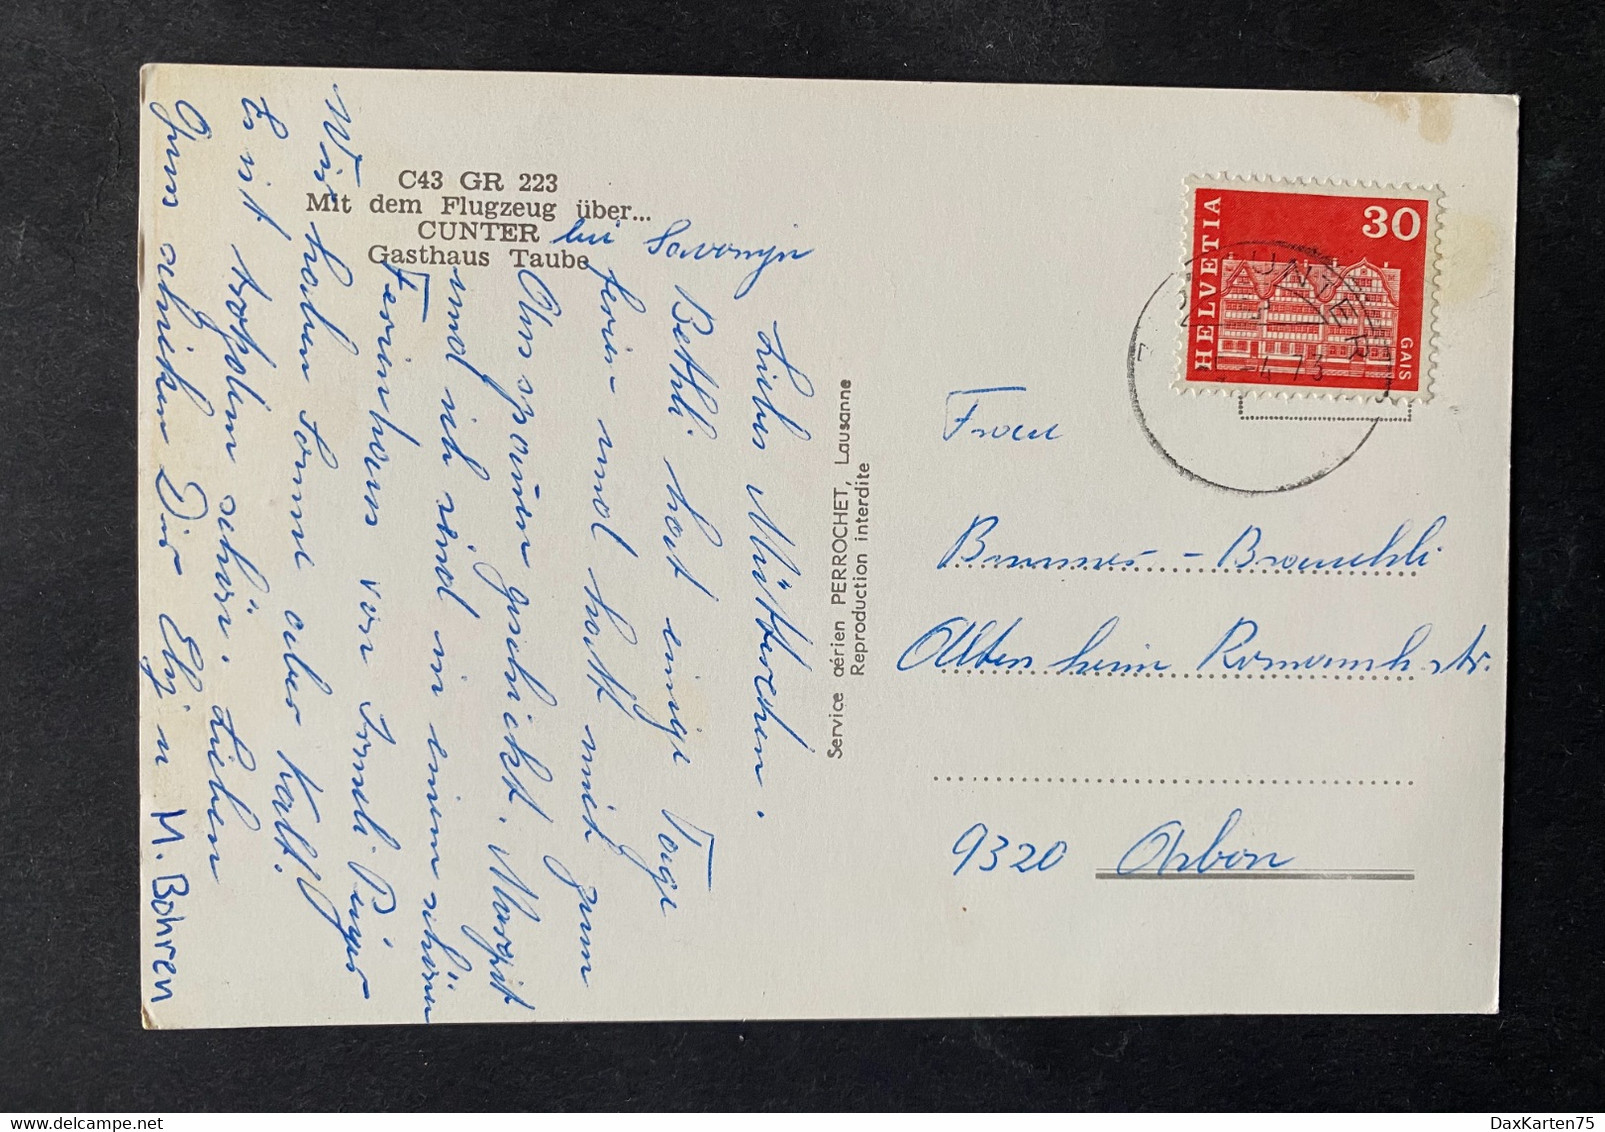 C43 GR 223
Mit dem Flugzeug über...
CUNTER bei Savonyn
Gasthaus Taube
Liebes Mütterchen.
Bethli hat einige Tage
ferien und hatt mich zum
Ausspauen geschickt. Margrit
und ich sind in einem schönen
Ferienhaus von
Wir haben Sonne aber kalt.
Es ist trotzdem schön. Lieben
Gruss schicken Dir Elsi u M. Bohren
Service aérien PERROCHET, Lausanne
Reproduction interdite
HELVETIA
30
GAIS
CUNTER
4.73
Frau
Brunner - Brauchli
Altersheim Romanshstr.
9320 Arbon
DaxKarten75